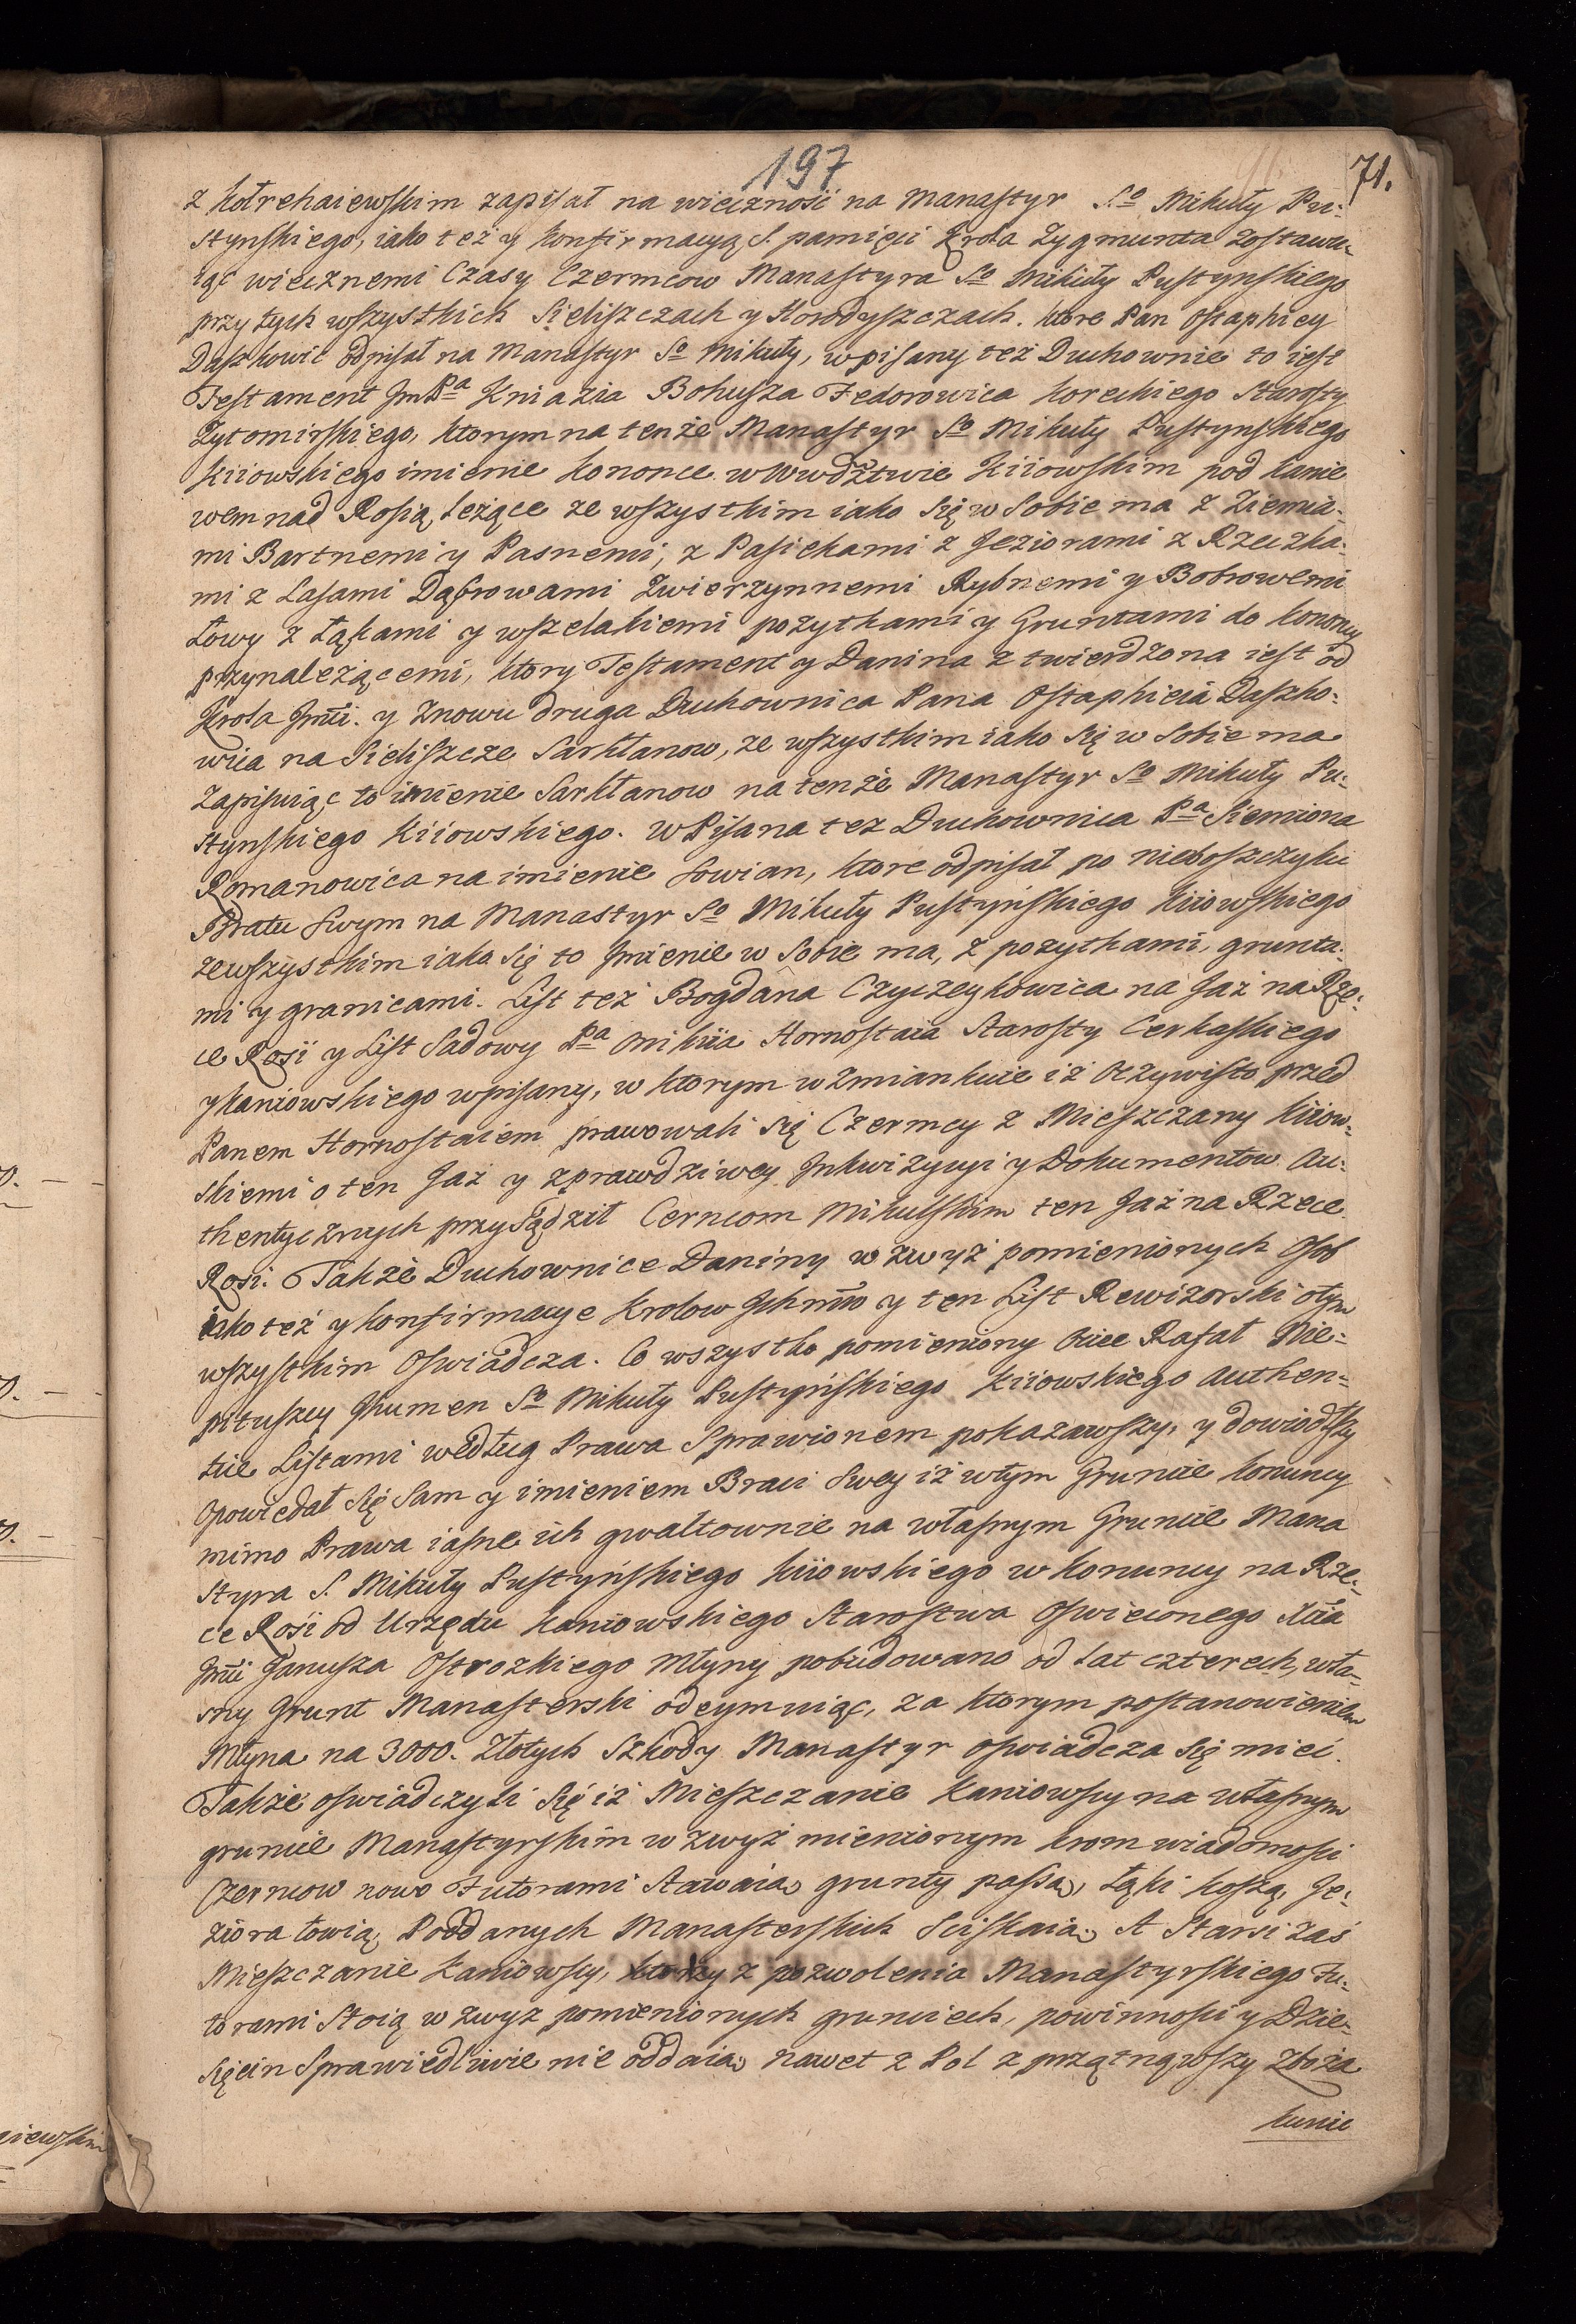 197
71.
z Kołrehaiewskim zapisał na wieczność na Manastyr S.o Mikuły Pu-
stynskiego, iako też y Konfirmacyą S. pamięci Krola Zygmunta zostawu-
iąc wiecznemi Czasy Czerncow Manastyra So Mikuły Pustynskiego
przy tych wszystkich Sieliszczach y Horodyszczach. Ktore Pan Ostaphiey
Daszkowic odpisał na Manastyr So Mikuły, wpisany też Duchownie to iest
Testament JmPa Kniazia Bohusza Fedorowica Koreckiego Starosty
Zytomirskiego, ktorym na tenże Manastyr So Mikuły Pustynskiego
Kiiowskiego imienie Kononce w Wwdztwie Kiiowskim pod Kanie
wem nad Rosią, leżące ze wszystkim iako się w sobie ma z Ziemia-
mi Bartnemi y Pasnemi, z Pasiekami z Jeziorami z Rzeczka-
mi z Lasami Dąbrowami Zwierzynnemi Rybnemi y Bobrowemi
Łowy z Łąkami y wszelakiemi pozytkami y Gruntami do Kononcy
przynależącemi, ktory Testament y Danina ztwierdzona iest od
Krola Jmći. y znowu druga Duchownica Pana Ostaphieia Daszko-
wica na Sieliszcze Sarkłanow, ze wszystkim iako się w sobie ma
Zapisuiąc to imienie Sarkłanow na tenże Manastyr So Mikuły Pu-
stynskiego Kiiowskiego. W Pisana tez Duchownica Pa Siemiona
Romanowica na imienie Sowian, ktore odpisał po nieboszczyku
Bratu swym na Manastyr So Mikuły Pustyńskiego Kiiowskiego
ze wszystkim iako się to Jmienie w sobie ma, z pozytkami, grunta-
mi y granicami. List też Bogdana Czyczeykowica na Jaz na Rze-
ce Rosi y List Sadowy Pa Onikiia Hornostaia Starosty Cerkaskiego
y Kaniowskiego wpisany, w ktorym wzmiankuie iż oczywisto przed
Panem Hornostaiem prawowali się Czerncy z Mieszczany Kiiow-
skiemi o ten Jaz y z prawdziwey Jnkwizycyi y Dokumentow Au-
thentycznych przysądził Cerncom Mikulskim ten Jaz na Rzece
Rosi. Także Duchownice Daniny w zwyż pomienionych Osob
iako też y Konfirmacye Krolow Jchmw y ten List Rewizorski o tym
wszystkim Oswiadcza. Co wszystko pomieniony Ociec Rafał Nie-
pituszcy Jhumen So Mikuły Pustyńskiego Kiiowskiego Authen-
tice Listami według Prawa Sprawionem pokazawszy, y dowiodszy
Opowiedał się sam y imieniem Braci swey iż w tym Gruncie Konuncy
mimo Prawa iasne ich gwałtownie na własnym Gruncie Mana
styra S. Mikuły Pustyńskiego Kiiowskiego w Konuncy na Rze-
ce Rosi od Urzędu Kaniowskiego Starostwa Oswieconego Xiia
Jmći Janusza Ostrozkiego Młyny pobudowano od lat czterech, wła-
sny Grunt Manasterski odeymuiąc, za ktorym postanowieniem
Młyna na 3000. Złotych Szkody Manastyr oswiadcza się mieć.
Także oswiadczyli się iż Mieszczanie Kaniowscy na własnym
gruncie Manastyrskim w zwyż mienionym krom wiadomosci
Czerncow nowo Futorami stawaią, grunty passą, Łąki koszą, Je-
ziora łowią, Poddanych Manasterskich Sciskaią. A Starsi zaś
Mieszczanie Kaniowscy, ktorzy z pozwolenia Manastyrskiego Fu-
torami Stoią w zwyz pomienionych grunciech, powinnosci y Dzie-
sięcin Sprawiedliwie nie oddaią, nawet z Pol z przątnąwszy Zboża
Kunic